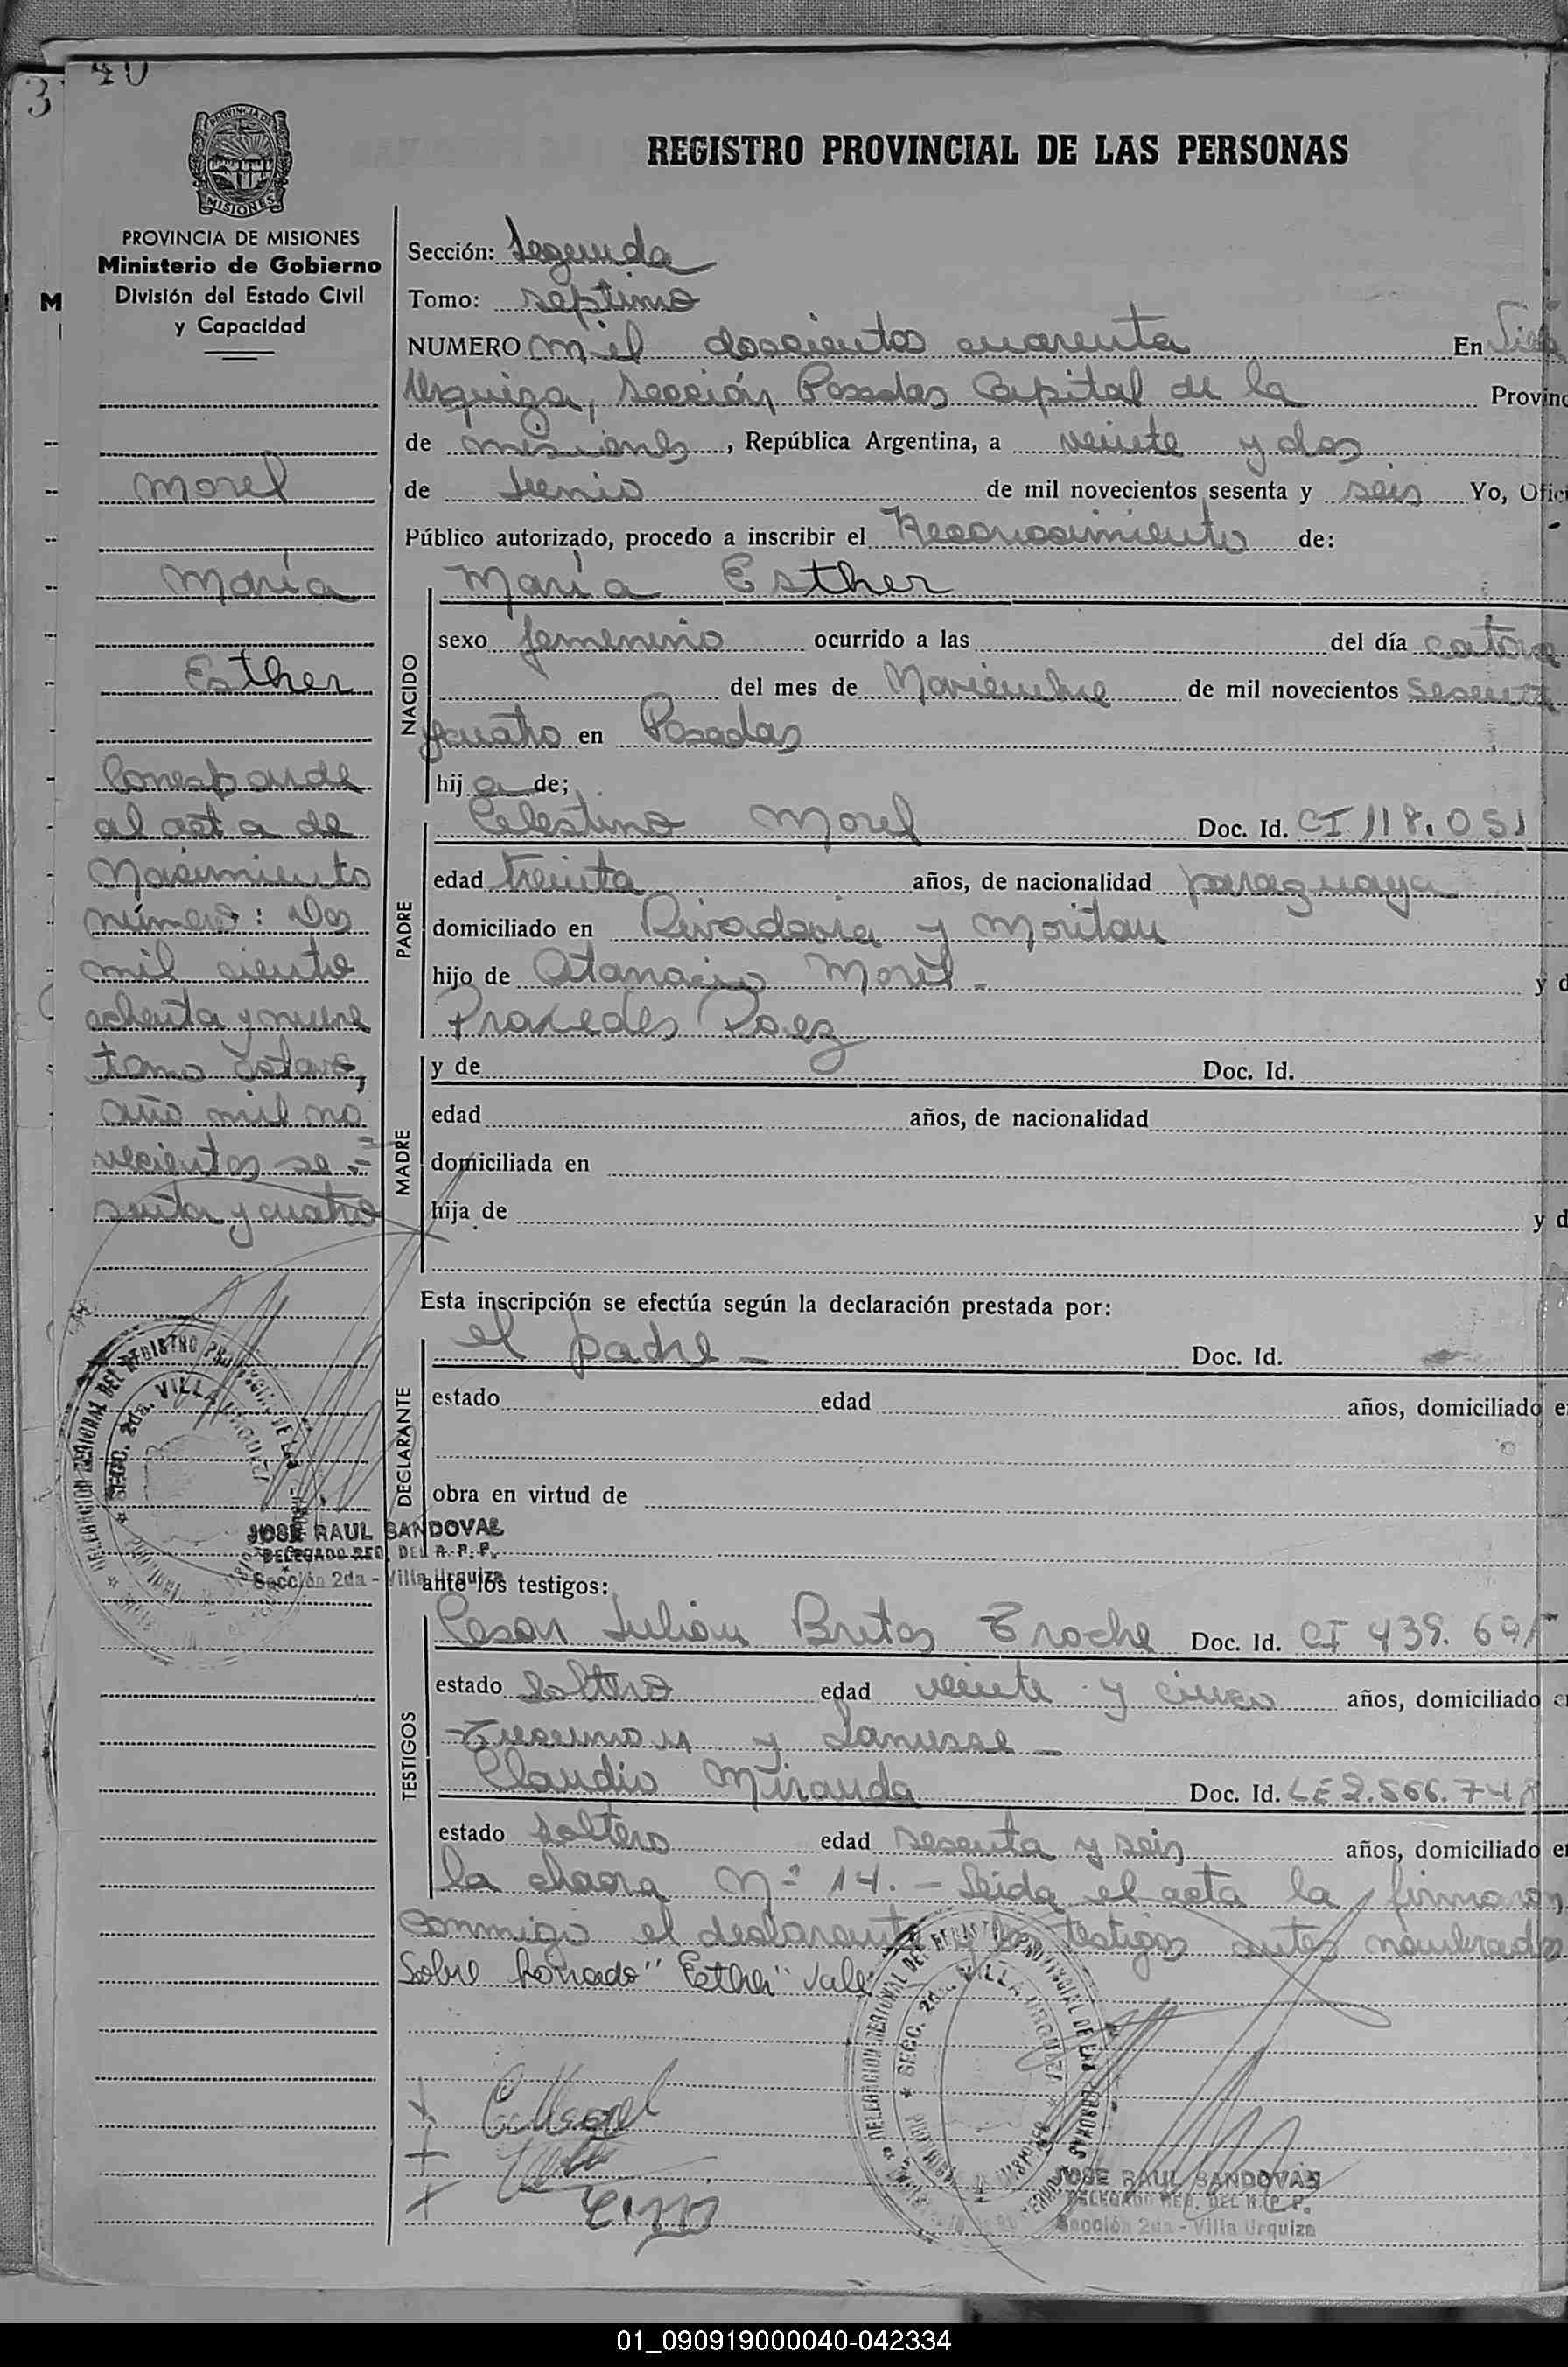 40
3
PROVINCIA DE
MISIONES
PROVINCIA DE MISIONES
Ministerio de Gobierno
División del Estado Civil
y Capacidad
M
Morel
María
Esther
Corresponde
al acta de
Nacimiento
número: Dos
mil ciento
ochenta y nueve
tomo octavo,
año mil no
vecientos se =
senta y cuatro
REGISTRO PROVINCIAL DE LAS PERSONAS
Sección: Segunda
Tomo: septimo
NUMERO mil doscientos cuarenta En
Urquiza, Sección Posadas Capital de la Provinc
de Misiones, República Argentina, a veinte y dos
de Junio de mil novecientos sesenta y seis Yo, Ofici
Público autorizado, procedo a inscribir el Reconocimiento de:
NACIDO
María Esther
sexo femenino ocurrido a las del día catorce
del mes de Noviembre de mil novecientos sesenta
y cuatro en Posadas
hij a de;
PADRE
Celestino Morel Doc. Id. CI 118.051
edad treinta años, de nacionalidad paraguaya
domiciliado en Rivadavia y Moritan
hijo de Atanacio Morel - y d
Praxedes Paez
MADRE
y de Doc. Id.
edad años, de nacionalidad
domiciliada en
hija de y d
Esta inscripción se efectúa según la declaración prestada por:
DECLARANTE
el padre - Doc. Id.
estado edad años, domiciliado e
obra en virtud de
ante los testigos:
TESTIGOS
Cesar Julian Britos Troche Doc. Id. CI 439.69
estado soltero edad veinte y cinco años, domiciliado e
y Lanusse -
Claudio Miranda Doc. Id. LE 2.566.74
estado soltero edad sesenta y seis años, domiciliado e
la chacra Nº 14. - Leida el acta la firmaron
conmigo el declarante y los testigos antes nombrados
Sobre borrado "Esther" Vale
DELEGACION REGIONAL DEL REGISTRO PROVINCIAL DE LAS
SECC. 2da. VILLA URQUIZA
JOSE RAUL SANDOVAL
DELEGADO REG. DEL R. P. P.
Sección 2da - Villa Urquiza
DELEGACION REGIONAL DEL REGISTRO PROVINCIAL DE LAS PERSONAS
SECC. 2da. VILLA URQUIZA
C Morel
JOSE RAUL SANDOVAL
DELEGADO REG. DEL R. P. P.
Sección 2da - Villa Urquiza
01_090919000040-042334